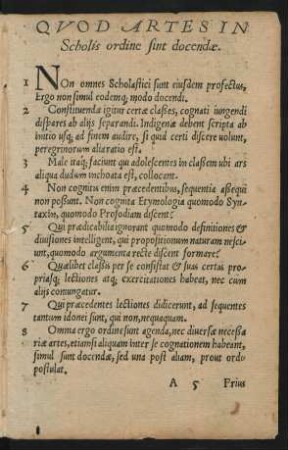 QVOD ARTES IN
Scholis ordine sint docendæ.
1 NOn omnes Scholastici sunt eiusdem profectus,
Ergo non simul eodemq; modo docendi.
2 Constituendæ igitur certæ classes, cognati iungendi
dispares ab alijs separandi. Indigenæ debent scripta ab
initio usq; ad finem audire, si quid certi discere uolunt,
peregrinorum alia ratio est.
3 Male itaq; faciunt qui adolescentes in classem ubi ars
aliqua dudum inchoata est, collocant.
4 Non cognitis enim præcedentibus, sequentia assequi
non possunt. Non cognita Etymologia quomodo Syn-
taxin, quomodo Prosodiam discent?
5 Qui prædicabilia ignorant quomodo definitiones &
diuisiones intelligent, qui propositionum naturam nesci-
unt, quomodo argumenta recte discent formare?
6 Quælibet classis per se consistat & suas certas pro-
priasq; lectiones atq; exercitationes habeat, nec cum
alijs coniungatur.
7 Qui præcedentes lectiones didicerunt, ad sequentes
tantum idonei sunt, qui non, nequaquam.
8 Omnia ergo ordine sunt agenda, nec diuersæ necessa-
riæ artes, etiamsi aliquam inter se cognationem habeant,
simul sunt docendæ, sed una post aliam, prout ordo
postulat.
A 5 Prius